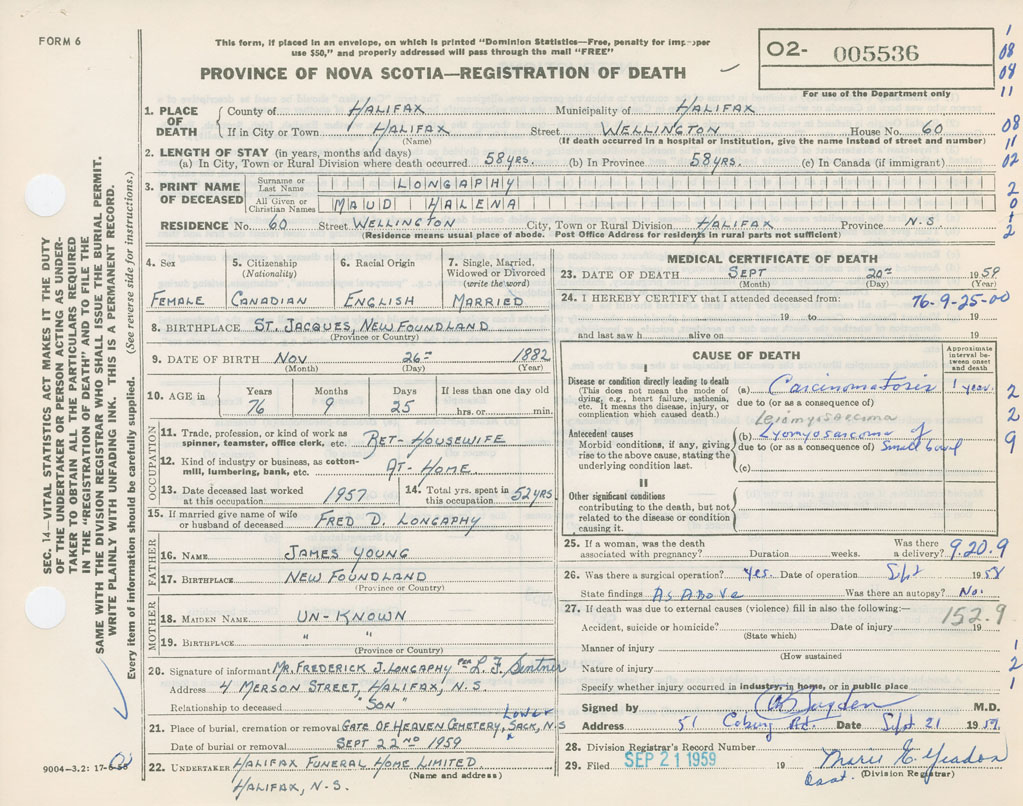 FORM 6
This form, if placed in an envelope, on which is printed "Dominion Statistics—Free, penalty for improper
use $50," and properly addressed will pass through the mail "FREE"
PROVINCE OF NOVA SCOTIA—REGISTRATION OF DEATH
02- 005536
For use of the Department only
1
08
04
11
08
11
02
2
0
1
2
1. PLACE OF DEATH
County of HALIFAX Municipality of HALIFAX
If in City or Town HALIFAX Street WELLINGTON House No. 60
(Name) (If death occurred in a hospital or institution, give the name instead of street and number)
2. LENGTH OF STAY (in years, months and days)
(a) In City, Town or Rural Division where death occurred 58 YRS. (b) In Province 58 YRS. (c) In Canada (if immigrant)
3. PRINT NAME OF DECEASED
Surname or Last Name LONGAPHY
All Given or Christian Names MAUD HALENA
RESIDENCE No. 60 Street WELLINGTON City, Town or Rural Division HALIFAX Province N.S
(Residence means usual place of abode. Post Office Address for residents in rural parts not sufficient)
SEC. 14—VITAL STATISTICS ACT MAKES IT THE DUTY
OF THE UNDERTAKER OR PERSON ACTING AS UNDER-
TAKER TO OBTAIN ALL THE PARTICULARS REQUIRED
IN THE "REGISTRATION OF DEATH" AND TO FILE THE
SAME WITH THE DIVISION REGISTRAR WHO SHALL ISSUE THE BURIAL PERMIT.
WRITE PLAINLY WITH UNFADING INK. THIS IS A PERMANENT RECORD.
Every item of information should be carefully supplied. (See reverse side for instructions.)
4. Sex 5. Citizenship (Nationality) 6. Racial Origin 7. Single, Married, Widowed or Divorced (write the word)
FEMALE CANADIAN ENGLISH MARRIED
8. BIRTHPLACE ST. JACQUES, NEW FOUNDLAND
(Province or Country)
9. DATE OF BIRTH NOV 26TH 1882
(Month) (Day) (Year)
10. AGE in Years Months Days If less than one day old
76 9 25 hrs. or min.
OCCUPATION
11. Trade, profession, or kind of work as
spinner, teamster, office clerk, etc. RET- HOUSEWIFE
12. Kind of industry or business, as cotton-
mill, lumbering, bank, etc. AT- HOME.
13. Date deceased last worked
at this occupation 1957
14. Total yrs. spent in
this occupation 52 YRS.
15. If married give name of wife
or husband of deceased FRED D. LONGAPHY
FATHER
16. NAME JAMES YOUNG
17. BIRTHPLACE NEW FOUNDLAND
(Province or Country)
MOTHER
18. MAIDEN NAME UN-KNOWN
19. BIRTHPLACE " "
(Province or Country)
20. Signature of informant MR. FREDERICK J. LONGAPHY PER L. F. Sentner
Address 4 MERSON STREET, HALIFAX, N.S.
Relationship to deceased "SON"
21. Place of burial, cremation or removal GATE OF HEAVEN CEMETERY, LOWER SACK, N.S
Date of burial or removal SEPT 22ND 1959
22. UNDERTAKER HALIFAX FUNERAL HOME LIMITED.
(Name and address)
HALIFAX, N.S.
9004-3.2: 17-6-58
MEDICAL CERTIFICATE OF DEATH
23. DATE OF DEATH SEPT 20TH 1959
(Month) (Day) (Year)
24. I HEREBY CERTIFY that I attended deceased from: 76-9-25-00
19 to 19
and last saw h alive on 19
CAUSE OF DEATH
Approximate interval between onset and death
I
Disease or condition directly leading to death
(This does not mean the mode of
dying, e.g., heart failure, asthenia,
etc. It means the disease, injury, or
complication which caused death.)
(a) Carcinomatosis 1 year
due to (or as a consequence of)
Antecedent causes
Morbid conditions, if any, giving
rise to the above cause, stating the
underlying condition last.
leiomyosarcoma
(b) Lyomyosarcoma of
due to (or as a consequence of) Small bowel
(c)
II
Other significant conditions
contributing to the death, but not
related to the disease or condition
causing it.
2
2
9
25. If a woman, was the death
associated with pregnancy? Duration weeks. Was there a delivery? 9.20.9
26. Was there a surgical operation? Yes. Date of operation Sept 1958
State findings As Above Was there an autopsy? No.
27. If death was due to external causes (violence) fill in also the following:— 152.9
Accident, suicide or homicide? Date of injury 19
(State which)
Manner of injury
(How sustained
Nature of injury
Specify whether injury occurred in industry, in home, or in public place
1
2
1
Signed by M.D.
Address 51 Coburg Rd. Date Sept 21 1959.
28. Division Registrar's Record Number
29. Filed SEP 21 1959 19 Marie E. Yeadon
(Division Registrar)